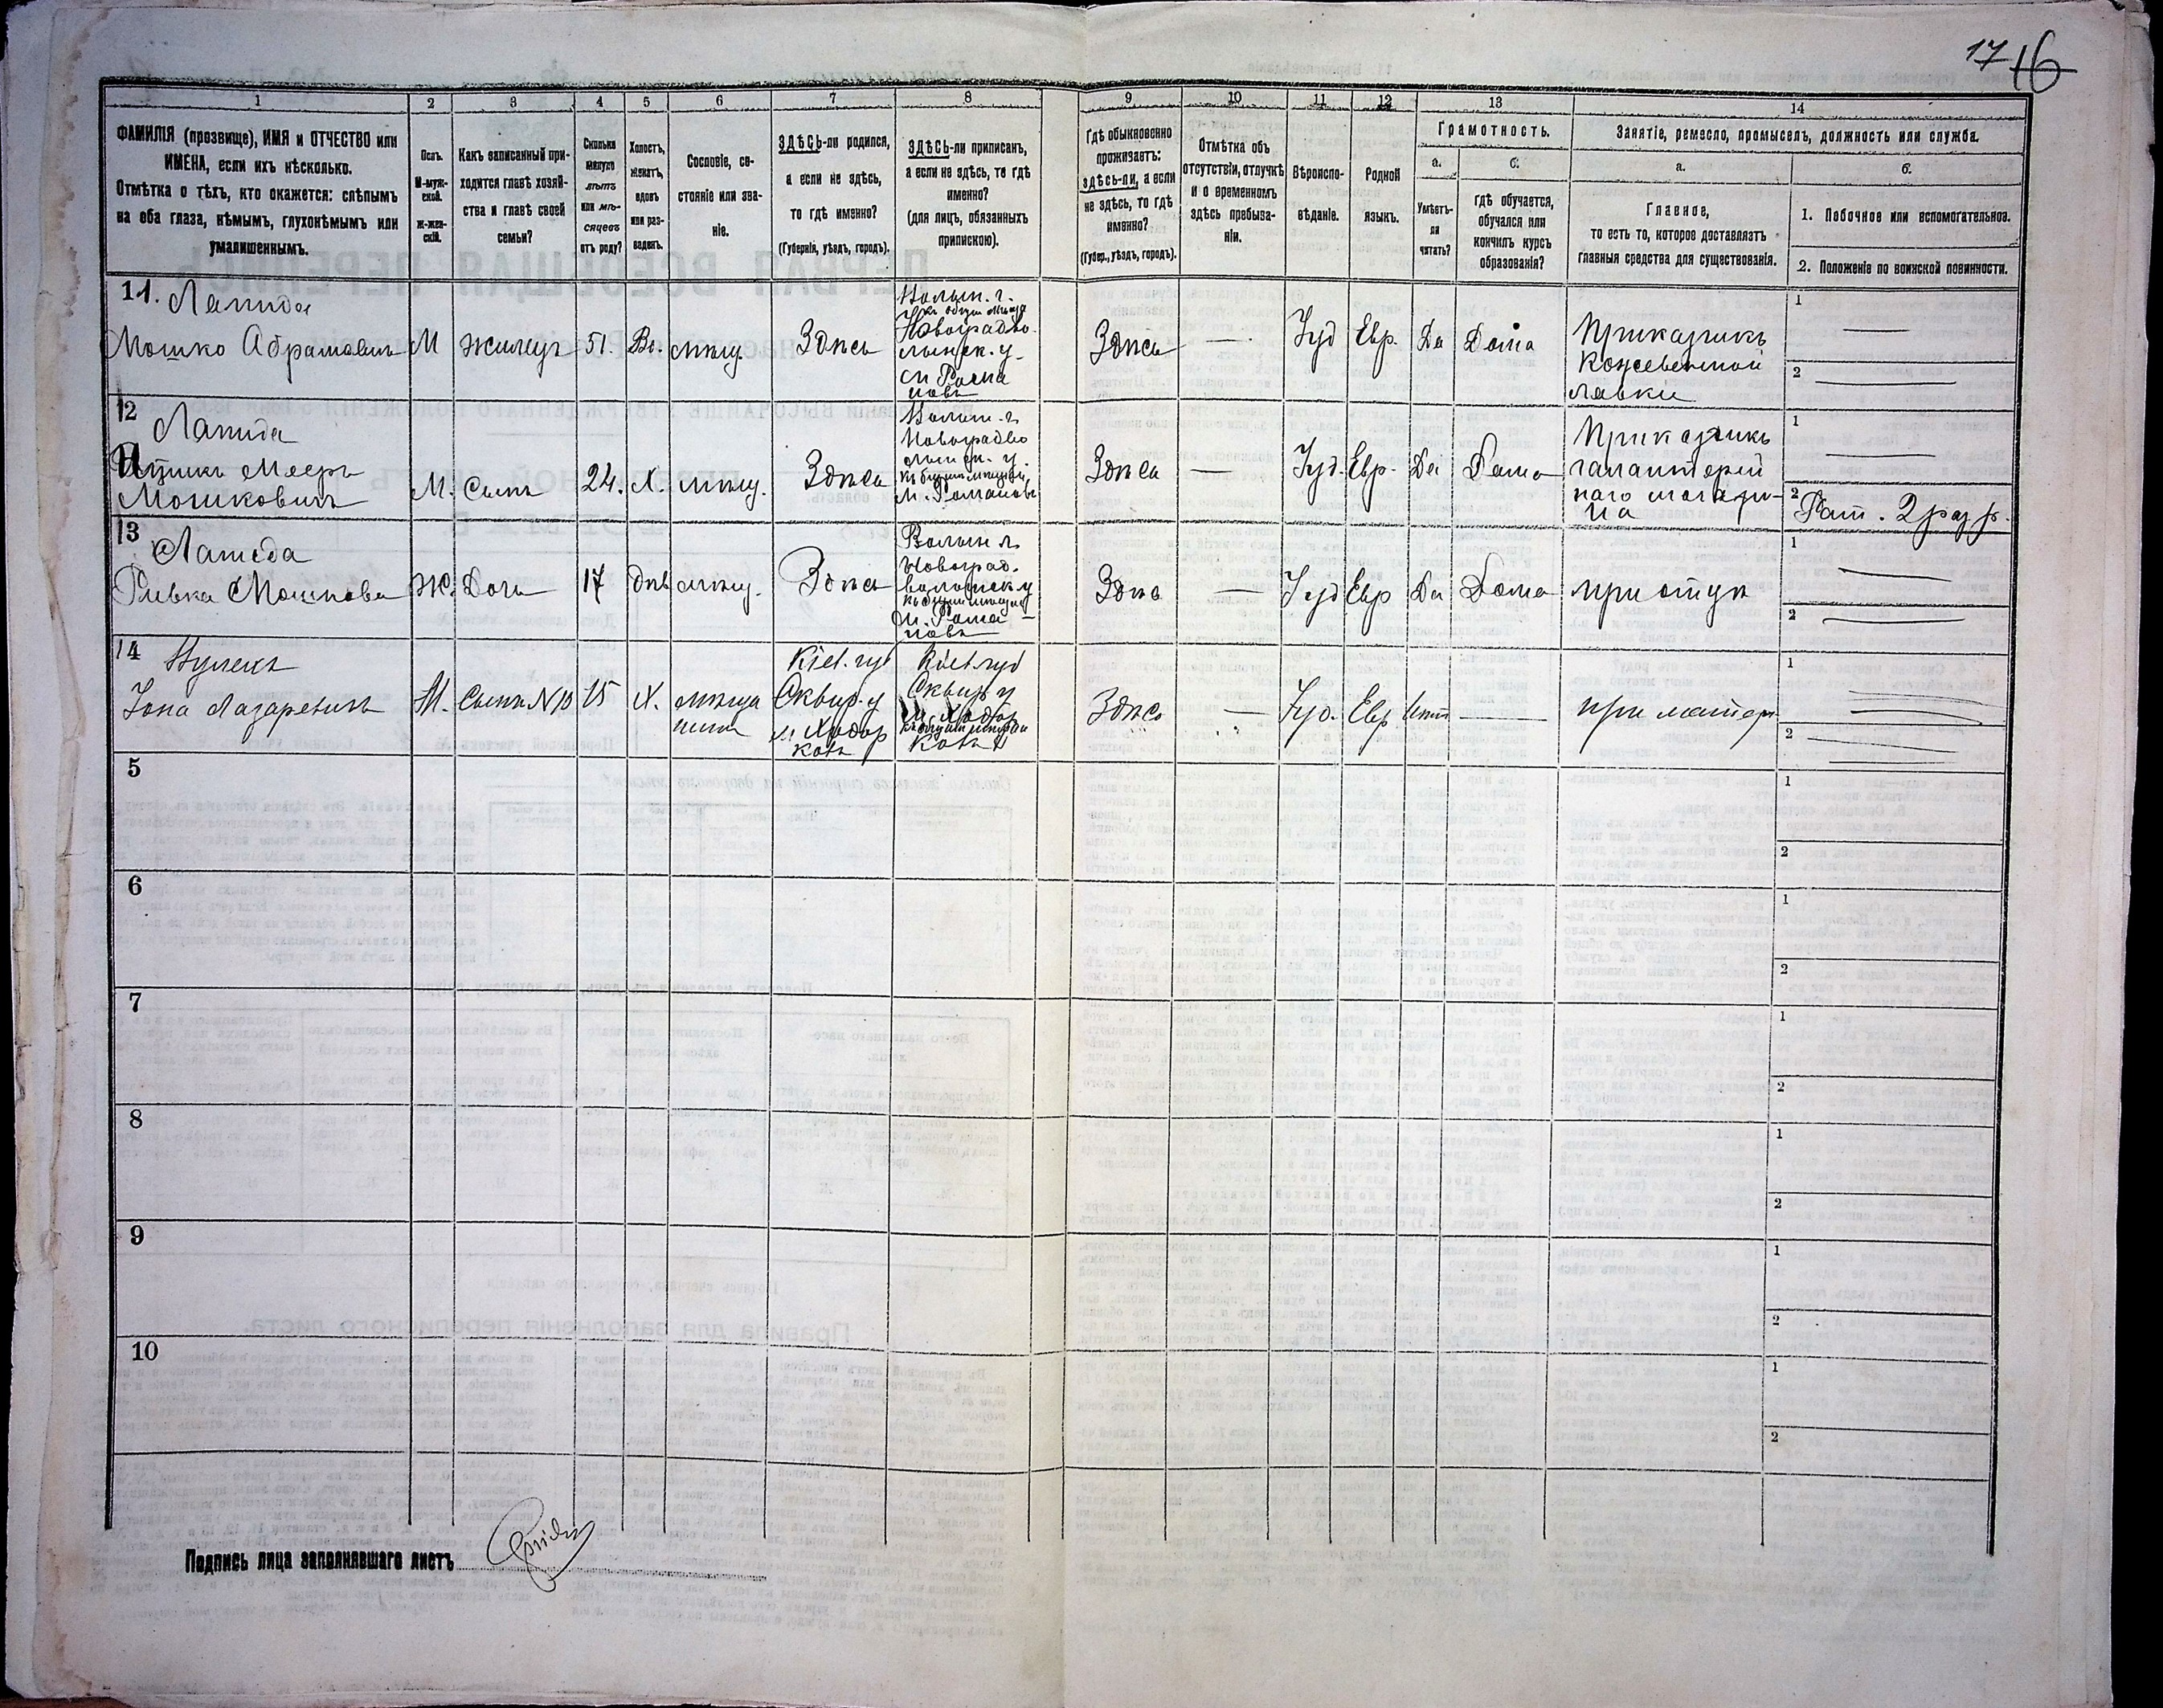 17 16
1 2 3 4 5 6 7 8 9 10 11 12 13 14
ФАМИЛІЯ (прозвище), ИМЯ и ОТЧЕСТВО или
ИМЕНА, если ихъ нѣсколько.
Отмѣтка о тѣхъ, кто окажется: слѣпымъ
на оба глаза, нѣмымъ, глухонѣмымъ или
умалишеннымъ.
Полъ.
М-муж-
ской.
Ж-жен-
скій.
Какъ записанный при-
ходится главѣ хозяй-
ства и главѣ своей
семьи?
Сколько
минуло
лѣтъ
или мѣ-
сяцевъ
отъ роду?
Холостъ,
женатъ,
вдовъ
или раз-
веденъ.
Сословіе, со-
стояніе или зва-
ніе.
ЗДѢСЬ-ли родился,
а если не здѣсь,
то гдѣ именно?
(Губернія, уѣздъ, городъ).
ЗДѢСЬ-ли приписанъ,
а если не здѣсь, то гдѣ
именно?
(для лицъ, обязанныхъ
припискою).
Гдѣ обыкновенно
проживаетъ:
здѣсь-ли, а если
не здѣсь, то гдѣ
именно?
(Губер., уѣздъ, городъ).
Отмѣтка объ
отсутствіи, отлучкѣ
и о временномъ
здѣсь пребыва-
ніи.
Вѣроиспо-
вѣданіе.
Родной
языкъ.
Грамотность.
а.
Умѣетъ-
ли
читать?
б.
гдѣ обучается,
обучался или
кончилъ курсъ
образованія?
Занятіе, ремесло, промыселъ, должность или служба.
а.
Главное,
то есть то, которое доставляетъ
главныя средства для существованія.
б.
1. Побочное или вспомогательное.
2. Положеніе по воинской повинности.
11. Лапида
Мошко Абрамовичъ М Жилецъ 51. Вд. мѣщ. Здѣсь
Волын. г.
Новоградво-
лынск. у.
м Рома
новъ
Здѣсь — Іуд Евр. Да Дома
Приказчикъ
Кожевенной
лавки
1
2
12 Лапида
Ицикъ Мееръ
Мошковичъ М. Сынъ 24. Х. мѣщ. Здѣсь
Волын. г.
Новоградво
лынск. у.
м. Романовъ
Здѣсь — Іуд. Евр. Да Дома
Приказчикъ
галантерей
наго магази-
на
1
2 Рат. 2 разр.
13 Лапида
Ривка Мошкова Ж. Дочь 17 двѣ мѣщ. Здѣсь
Волын г.
Новоград.
волынск у
м. Рома-
новъ
Здѣсь — Іуд Евр Да Дома при отцѣ
1
2
14
Іона Лазаревичъ М. Сынъ N10 15 Х. мѣща
нинъ
Кіев. губ
Сквир. у
м Ходор
ковъ
Кіев. губ
Сквир у
м. Ходор
ковъ
Здѣсь — Іуд. Евр Нѣт — при матери
1
2
5 1
2
6 1
2
7 1
2
8 1
2
9 1
2
10 1
2
Подпись лица заполнявшаго листъ